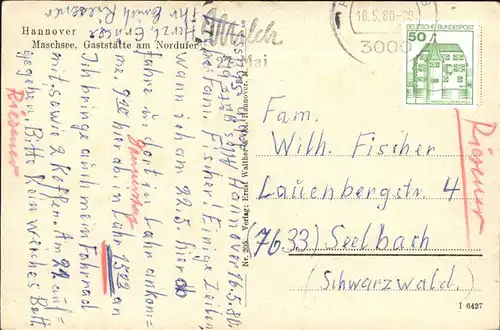 Hannover
Maschsee, Gaststätte am Nordufer
3000 Hannover 16.5.80.
Fam. Fischer! Einige Zeilen,
wann ich am 22.5. hier ab
fahre u. dort in Lahr ankom=
me. 9 20 hier ab in Lahr 15 02 an
Donnerstag
Ich bringe auch mein Fahrrad
mit sowie 2 Koffer. Am 21. auf=
gegeben. Bitte kein weiches Bett.
Herzl. Grüsse
Ihr Emil Riesener
Riesener
Nr. 205 Verlag: Ernst Walther, Hannover
Milch
27. Mai
16.5.80
3000
DEUTSCHE BUNDESPOST
50
Fam.
Wilh. Fischer
Lauenbergstr. 4
(7633) Seelbach
(Schwarzwald.)
Riesener
I 6427